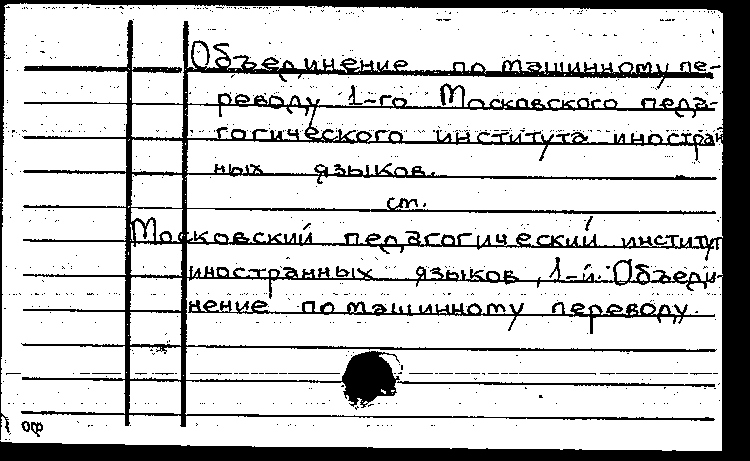 Объединение по машинному пе-
реводу 1-го Московского педа-
гогического института иностран
ных языков.
см.
Московский педагогический институт
иностранных языков, 1-й. Объеди-
нение по машинному переводу.
оф